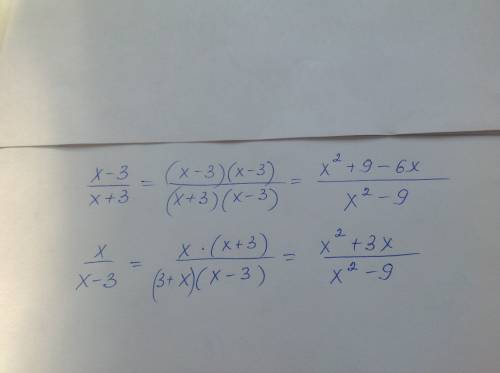 (x-3)/(x+3) = ((x-3)(x-3))/((x+3)(x-3)) = (x²+9-6x)/(x²-9)
x/(x-3) = (x·(x+3))/((3+x)(x-3)) = (x²+3x)/(x²-9)